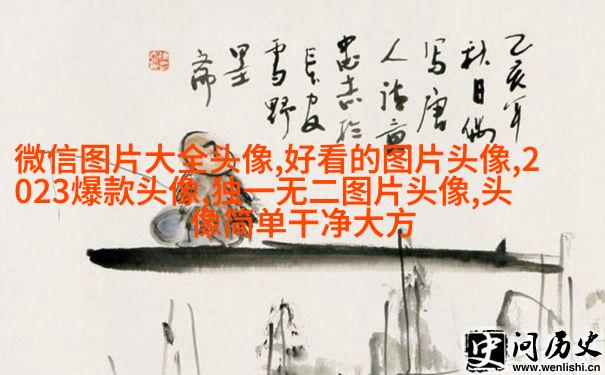 乙亥年
秋日偶
写唐
人诗意
忠志於
长安
雪野
墨
斋
微信图片大全头像,好看的图片头像,2
023爆款头像,独一无二图片头像,头
像简单干净大方
史问历史
www.wenlishi.cn